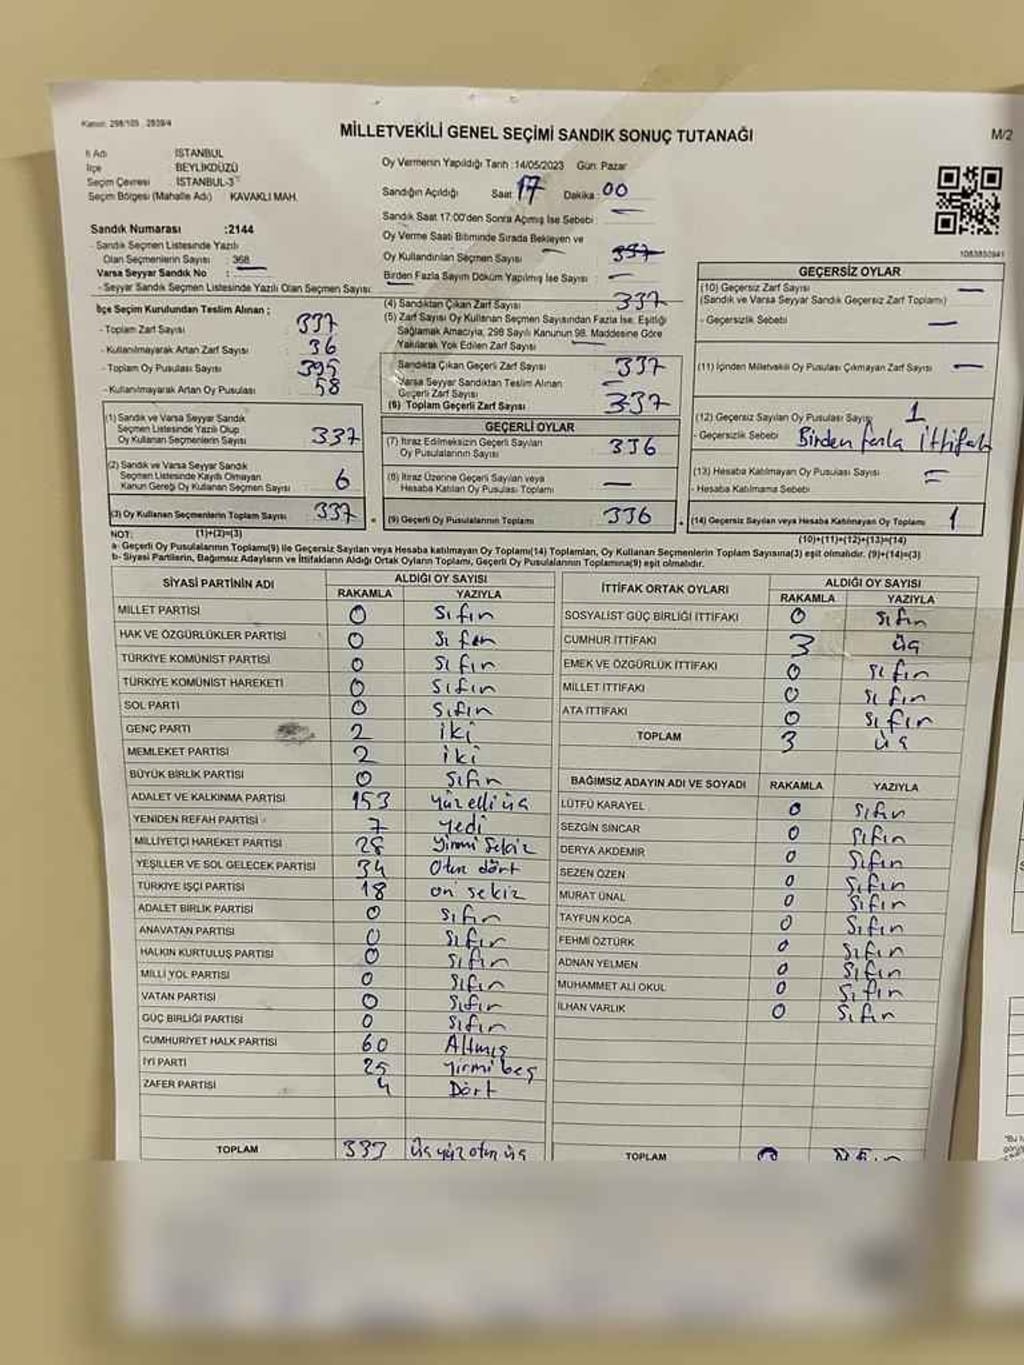 Kanun: 298/105 2839/4
MİLLETVEKİLİ GENEL SEÇİMİ SANDIK SONUÇ TUTANAĞI
M/2
İl Adı İSTANBUL
İlçe BEYLİKDÜZÜ
Seçim Çevresi İSTANBUL-3
Seçim Bölgesi (Mahalle Adı) KAVAKLI MAH.
Sandık Numarası :2144
- Sandık Seçmen Listesinde Yazılı
Olan Seçmenlerin Sayısı : 368
Varsa Seyyar Sandık No :
- Seyyar Sandık Seçmen Listesinde Yazılı Olan Seçmen Sayısı:
Oy Vermenin Yapıldığı Tarih :14/05/2023 Gün: Pazar
Sandığın Açıldığı Saat 17 Dakika: 00
Sandık Saat 17:00'den Sonra Açılmış İse Sebebi : —
Oy Verme Saati Bitiminde Sırada Bekleyen ve
Oy Kullandırılan Seçmen Sayısı : 337
Birden Fazla Sayım Döküm Yapılmış İse Sayısı : —
1083850941
İlçe Seçim Kurulundan Teslim Alınan ;
- Toplam Zarf Sayısı 337
- Kullanılmayarak Artan Zarf Sayısı 36
- Toplam Oy Pusulası Sayısı 395
- Kullanılmayarak Artan Oy Pusulası 58
(1) Sandık ve Varsa Seyyar Sandık
Seçmen Listesinde Yazılı Olup
Oy Kullanan Seçmenlerin Sayısı 337
(2) Sandık ve Varsa Seyyar Sandık
Seçmen Listesinde Kayıtlı Olmayan
Kanun Gereği Oy Kullanan Seçmen Sayısı 6
(3) Oy Kullanan Seçmenlerin Toplam Sayısı 337
(4) Sandıktan Çıkan Zarf Sayısı 337
(5) Zarf Sayısı Oy Kullanan Seçmen Sayısından Fazla İse, Eşitliği
Sağlamak Amacıyla, 298 Sayılı Kanunun 98. Maddesine Göre
Yakılarak Yok Edilen Zarf Sayısı —
Sandıkta Çıkan Geçerli Zarf Sayısı 337
Varsa Seyyar Sandıktan Teslim Alınan
Geçerli Zarf Sayısı —
(6) Toplam Geçerli Zarf Sayısı 337
GEÇERLİ OYLAR
(7) İtiraz Edilmeksizin Geçerli Sayılan
Oy Pusulalarının Sayısı 336
(8) İtiraz Üzerine Geçerli Sayılan veya
Hesaba Katılan Oy Pusulası Toplamı —
(9) Geçerli Oy Pusulalarının Toplamı 336
GEÇERSİZ OYLAR
(10) Geçersiz Zarf Sayısı —
(Sandık ve Varsa Seyyar Sandık Geçersiz Zarf Toplamı)
- Geçersizlik Sebebi —
(11) İçinden Milletvekili Oy Pusulası Çıkmayan Zarf Sayısı —
(12) Geçersiz Sayılan Oy Pusulası Sayısı 1
- Geçersizlik Sebebi Birden fazla ittifak
(13) Hesaba Katılmayan Oy Pusulası Sayısı —
- Hesaba Katılmama Sebebi —
(14) Geçersiz Sayılan veya Hesaba Katılmayan Oy Toplamı 1
NOT: (1)+(2)=(3) (10)+(11)+(12)+(13)=(14)
a- Geçerli Oy Pusulalarının Toplamı(9) ile Geçersiz Sayılan veya Hesaba katılmayan Oy Toplamı(14) Toplamları, Oy Kullanan Seçmenlerin Toplam Sayısına(3) eşit olmalıdır. (9)+(14)=(3)
b- Siyasi Partilerin, Bağımsız Adayların ve İttifakların Aldığı Ortak Oyların Toplamı, Geçerli Oy Pusulalarının Toplamına(9) eşit olmalıdır.
SİYASİ PARTİNİN ADI ALDIĞI OY SAYISI
RAKAMLA YAZIYLA
MİLLET PARTİSİ 0 sıfır
HAK VE ÖZGÜRLÜKLER PARTİSİ 0 sıfır
TÜRKİYE KOMÜNİST PARTİSİ 0 sıfır
TÜRKİYE KOMÜNİST HAREKETİ 0 sıfır
SOL PARTİ 0 sıfır
GENÇ PARTİ 2 iki
MEMLEKET PARTİSİ 2 iki
BÜYÜK BİRLİK PARTİSİ 0 sıfır
ADALET VE KALKINMA PARTİSİ 153 yüz elli üç
YENİDEN REFAH PARTİSİ 7 yedi
MİLLİYETÇİ HAREKET PARTİSİ 28 yirmi sekiz
YEŞİLLER VE SOL GELECEK PARTİSİ 34 Otuz dört
TÜRKİYE İŞÇİ PARTİSİ 18 on sekiz
ADALET BİRLİK PARTİSİ 0 sıfır
ANAVATAN PARTİSİ 0 sıfır
HALKIN KURTULUŞ PARTİSİ 0 sıfır
MİLLİ YOL PARTİSİ 0 sıfır
VATAN PARTİSİ 0 sıfır
GÜÇ BİRLİĞİ PARTİSİ 0 sıfır
CUMHURİYET HALK PARTİSİ 60 Altmış
İYİ PARTİ 25 yirmi beş
ZAFER PARTİSİ 4 Dört
TOPLAM 333 üç yüz otuz üç
İTTİFAK ORTAK OYLARI ALDIĞI OY SAYISI
RAKAMLA YAZIYLA
SOSYALİST GÜÇ BİRLİĞİ İTTİFAKI 0 sıfır
CUMHUR İTTİFAKI 3 üç
EMEK VE ÖZGÜRLÜK İTTİFAKI 0 sıfır
MİLLET İTTİFAKI 0 sıfır
ATA İTTİFAKI 0 sıfır
TOPLAM 3 üç
BAĞIMSIZ ADAYIN ADI VE SOYADI RAKAMLA YAZIYLA
LÜTFÜ KARAYEL 0 sıfır
SEZGİN SİNCAR 0 sıfır
DERYA AKDEMİR 0 sıfır
SEZEN ÖZEN 0 sıfır
MURAT ÜNAL 0 sıfır
TAYFUN KOCA 0 sıfır
FEHMİ ÖZTÜRK 0 sıfır
ADNAN YELMEN 0 sıfır
MUHAMMET ALİ OKUL 0 sıfır
İLHAN VARLIK 0 sıfır
TOPLAM 0